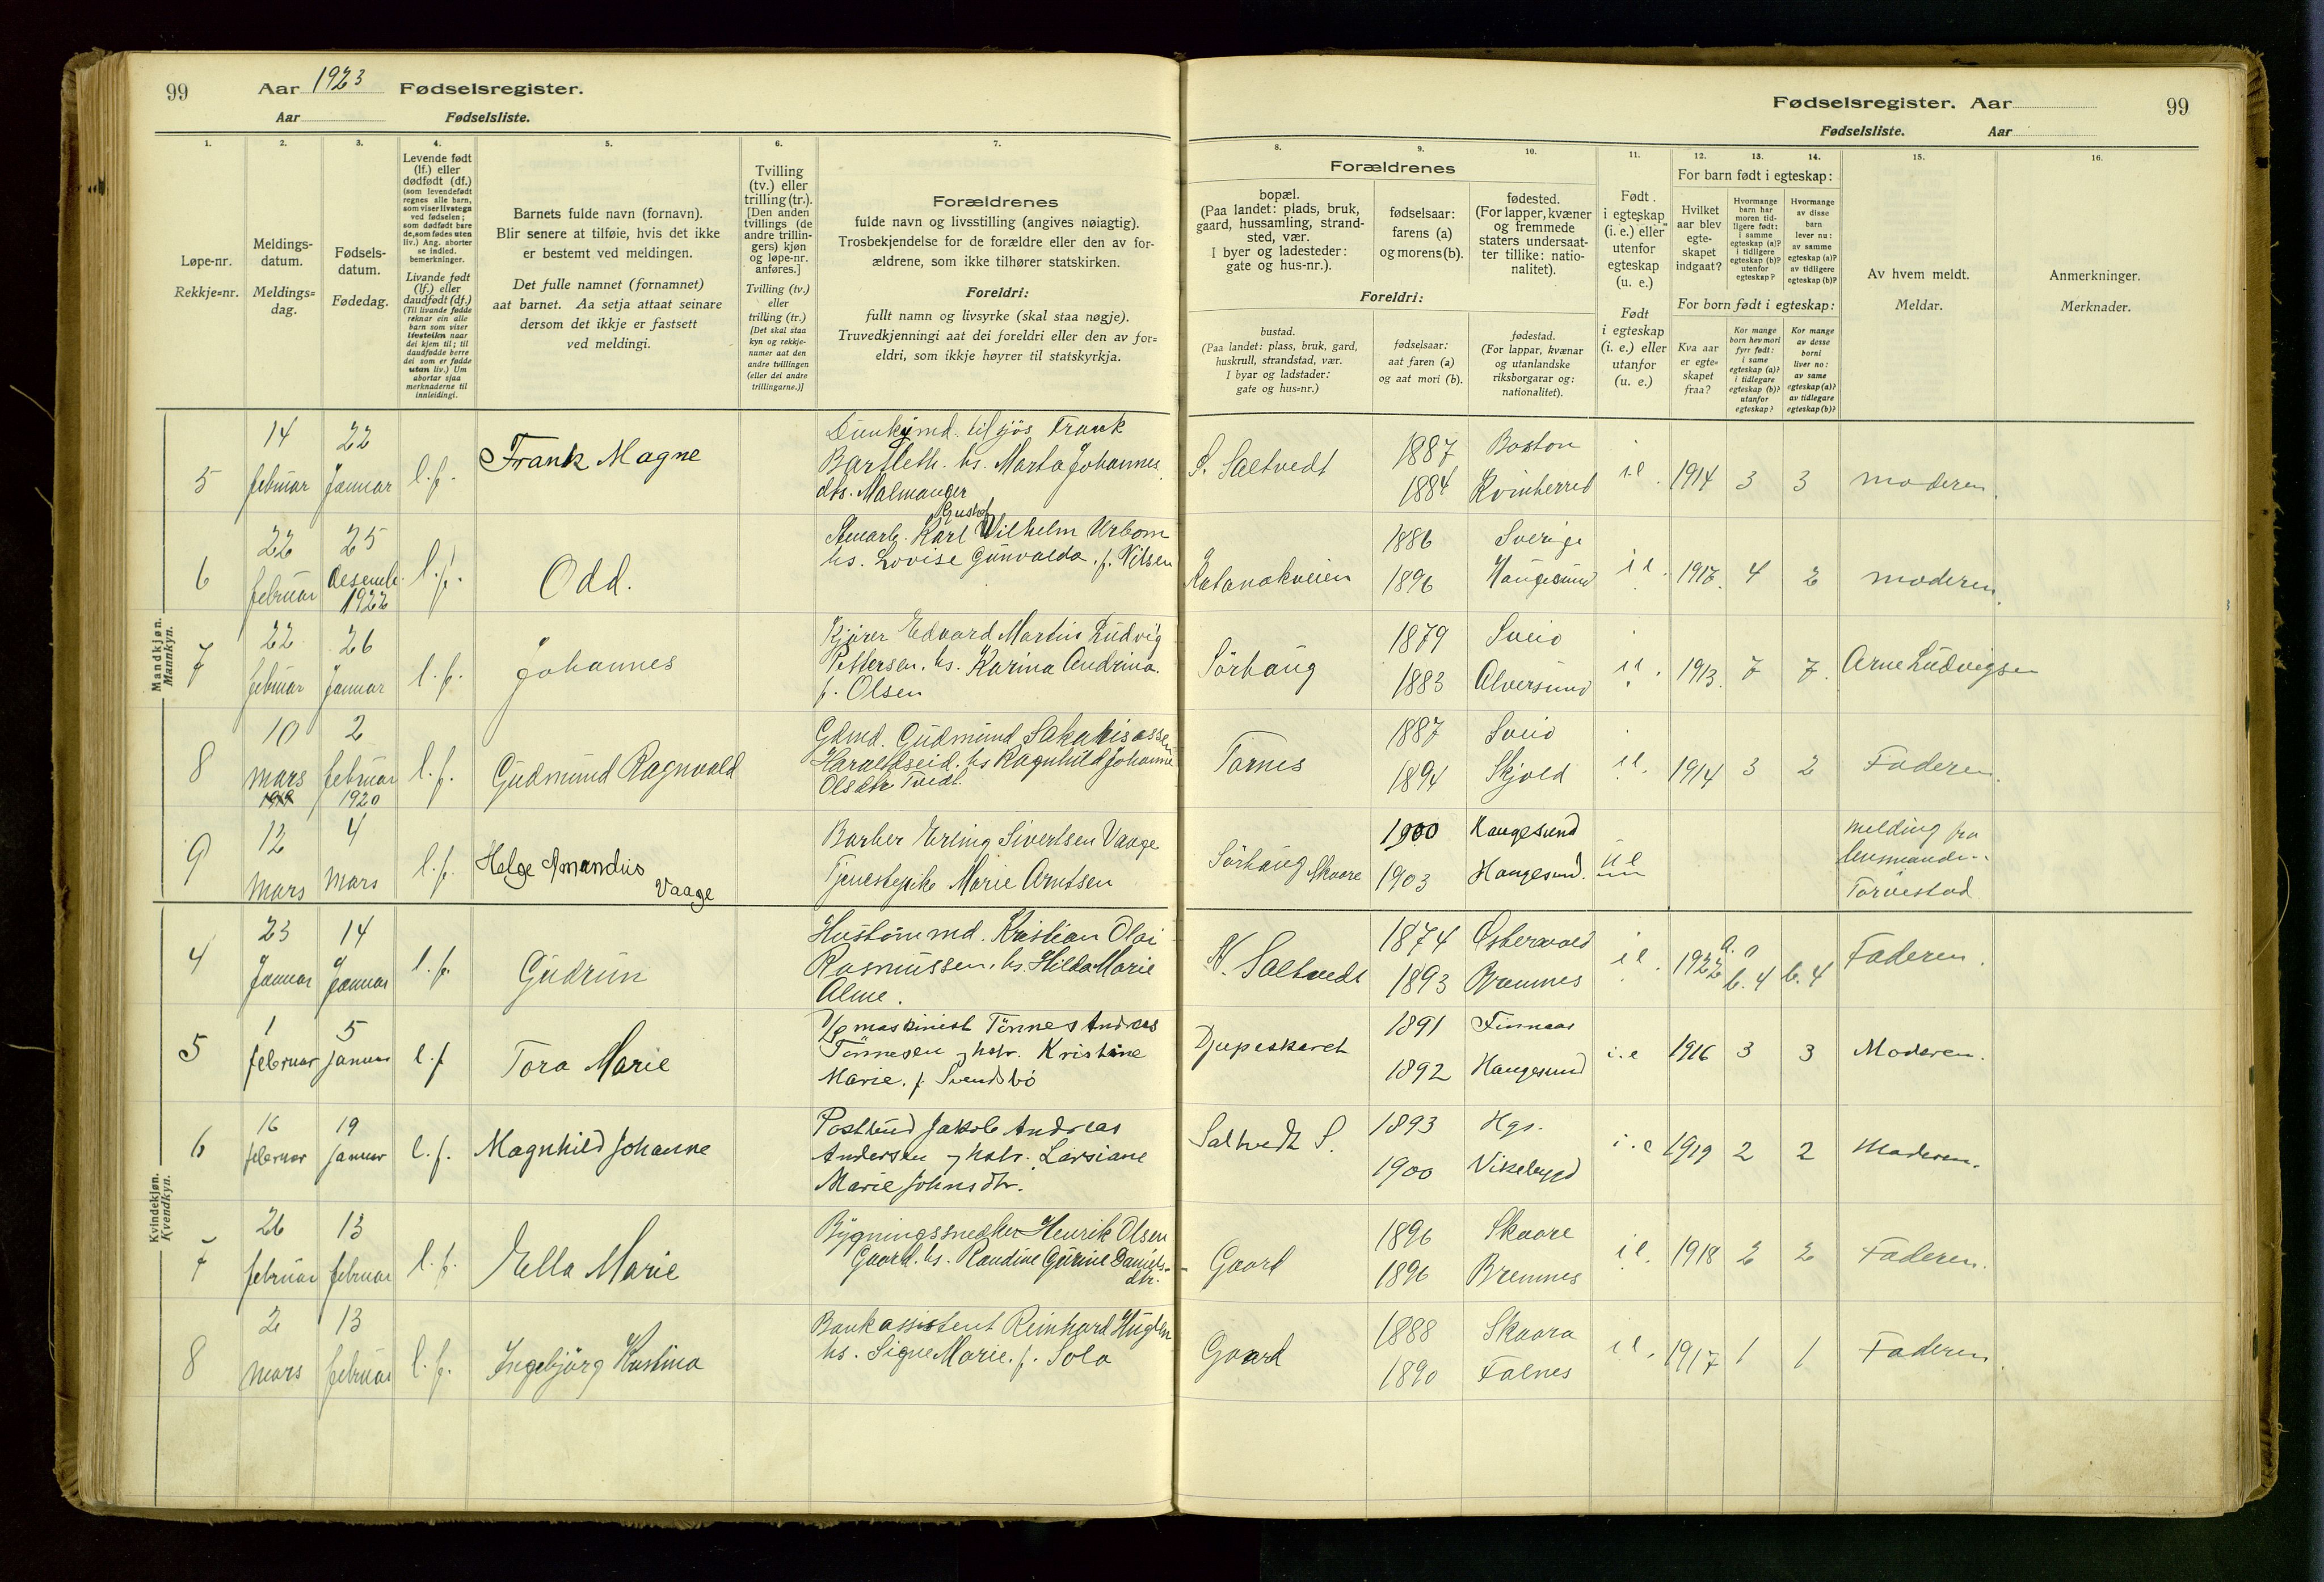 99
Aar 1923 Fødselsregister.
Aar Fødselsliste.
Fødselsregister. Aar
99
Fødselsliste. Aar
1. 2. 3. 4. 5. 6. 7.
Løpe-nr.
Rekkje=nr.
Meldings-
datum.
Meldings=
dag.
Fødsels-
datum.
Fødedag.
Levende født
(lf.) eller
dødfødt (df.)
(som levendefødt
regnes alle barn,
som viser livstegn
ved fødselen;
som dødfødt bare
de, som fødes uten
liv.) Ang. aborter
se indled.
bemerkninger.
Livande født
(lf.) eller
daudfødt (df.)
(Til livande fødde
reknar ein alle
barn som viser
livsteikn naar
dei kjem til; til
daudfødde berre
dei som er fødde
utan liv.) Um
abortar sjaa
merknaderne til
innleidingi.
Barnets fulde navn (fornavn).
Blir senere at tilføie, hvis det ikke
er bestemt ved meldingen.
Det fulle namnet (fornamnet)
aat barnet. Aa setja attaat seinare
dersom det ikkje er fastsett
ved meldingi.
Tvilling
(tv.) eller
trilling (tr.).
[Den anden
tvillings (de
andre trillin-
gers) kjøn
og løpe-nr.
anføres.]
Tvilling (tv.)
eller
trilling (tr.)
[Det skal staa
kyn og rekkje-
numer aat den
andre tvillingen
(eller dei andre
trillingarne.)]
Forældrenes
fulde navn og livsstilling (angives nøiagtig).
Trosbekjendelse for de forældre eller den av for-
ældrene, som ikke tilhører statskirken.
Foreldri:
fullt namn og livsyrke (skal staa nøgje).
Truvedkjenningi aat dei foreldri eller den av for=
eldri, som ikkje høyrer til statskyrkja.
8. 9. 10. 11. 12. 13. 14. 15. 16.
Forældrenes
bopæl.
(Paa landet: plads, bruk,
gaard, hussamling, strand-
sted, vær.
I byer og ladesteder:
gate og hus-nr.).
fødselsaar:
farens (a)
og morens (b).
fødested.
(For lapper, kvæner
og fremmede
staters undersaat-
ter tillike: natio-
nalitet).
Foreldri:
bustad.
(Paa landet: plass, bruk, gard,
huskrull, strandstad, vær.
I byar og ladstader:
gate og hus=nr.)
fødselsaar:
aat faren (a)
og aat mori (b).
fødestad.
(For lappar, kvænar
og utanlandske
riksborgarar og:
nationalitet).
Født
i egteskap
(i. e.) eller
utenfor
egteskap
(u. e.)
Født
i egteskap
(i. e.) eller
utanfor
(u. e.)
For barn født i egteskap:
Hvilket
aar blev
egte-
skapet
indgaat?
Hvormange
barn har
moren tid-
ligere født:
i samme
egteskap (a)?
i tidligere
egteskap (b)?
utenfor
egteskap?
Hvormange
av disse
barn
lever nu:
av samme
egteskap (a)?
av tidligere
egteskap (b)?
For born født i egteskap:
Kva aar
er egte=
skapet
fraa?
Kor mange
born hev mori
fyrr født:
i same
egteskap (a)?
i tidlegare
egteskap (b)?
utanfor
egteskap?
Kor mange
av desse
borni
liver no:
av same
egteskap (a)?
av tidlegare
egteskap (b)?
Av hvem meldt.
Meldar.
Anmerkninger.
Merknader.
Mandkjøn.
Mannkyn.
5 14 februar 22 Januar l. f. Frank Magne
Dunkymd. til sjös Frank
Bartleth. hs. Marta Johannes
dtr. Malmanger
S. Saltvedt 1887 Boston
1884 Kvinherred i e. 1914 3 3 moderen.
6 22 februar 25 desemb. 1922 l. f. Odd.
Gustaf
Karl Vilhelm Urbom
hs. Lovise Gunvalda. f. Nilsen
1886 Sverige
1896 Haugesund i e. 1917. 4 2 moderen.
7 22 februar 26 Januar l. f. Johannes
Kjører Edvard Martin Ludvig
Pettersen. hs. Karina Andrina
f. Olsen
Sörhaug 1879 Sveio
1883 Alversund i e. 1913. 7 7. Arne Ludvigsen
8 10 mars 1919 2 februar 1920 l. f. Gudmund Ragnvald
Gdmd. Gudmund Sakariassen
Haraldseid. hs Ragnhild Johanne
Olsdtr Tvedt.
Tornes 1887 Sveio
1894 Skjold i e. 1914 3 2 Faderen.
9 12 mars 4 mars l. f. Helge Amandus
Vaage
Barber Erling Sivertsen Vaage
Tjenestepike Marie Arntsen
Sörhaug Skaare 1900 Haugesund
1903 Haugesund. u e
melding fra
lensmanden
Torvestad
Kvindekjøn.
Kvendkyn.
4 23 Januar 14 Januar l. f. Gudrun
Hustömmd. Kristian Olai
Rasmussen. hs. Hilda Marie
Alme.
N. Saltvedt 1874 Östervold
1893 Bremnes i e. 1922 a. 0 b. 4 b. 4 Faderen.
5 1 februar 5 januar l. f Tora Marie
maskinist Tönnes Andreas
Tönnesen og hstr. Kristine
Marie. f. Svendsbö
Djupeskaret 1891 Finnaas
1892 Haugesund i. e 1916 3 3 Moderen.
6 16 februar 19 januar l. f. Magnhild Johanne
Postbud Jakob Andreas
Andersen og hstr. Larsiane
Marie Johnsdtr.
Saltvedt S. 1893 Hgs.
1900 Vikebygd i. e 1919 2 2 Moderen.
7 26 februar 13 februar l. f. Ella Marie
Bygningssnedker Henrik Olsen
Gaard. hs. Randine Gurine Daniels-
dtr.
Gaard 1896 Skaare
1896 Bremnes i e. 1918 2 2 Faderen.
8 2 mars 13 februar l. f. Ingebjörg Kristina
Bankassistent Reinhard Huglen
hs. Signe Marie. f. Sola
Gaard 1888 Skaara
1890 Falnes i e. 1917 1 1 Faderen.